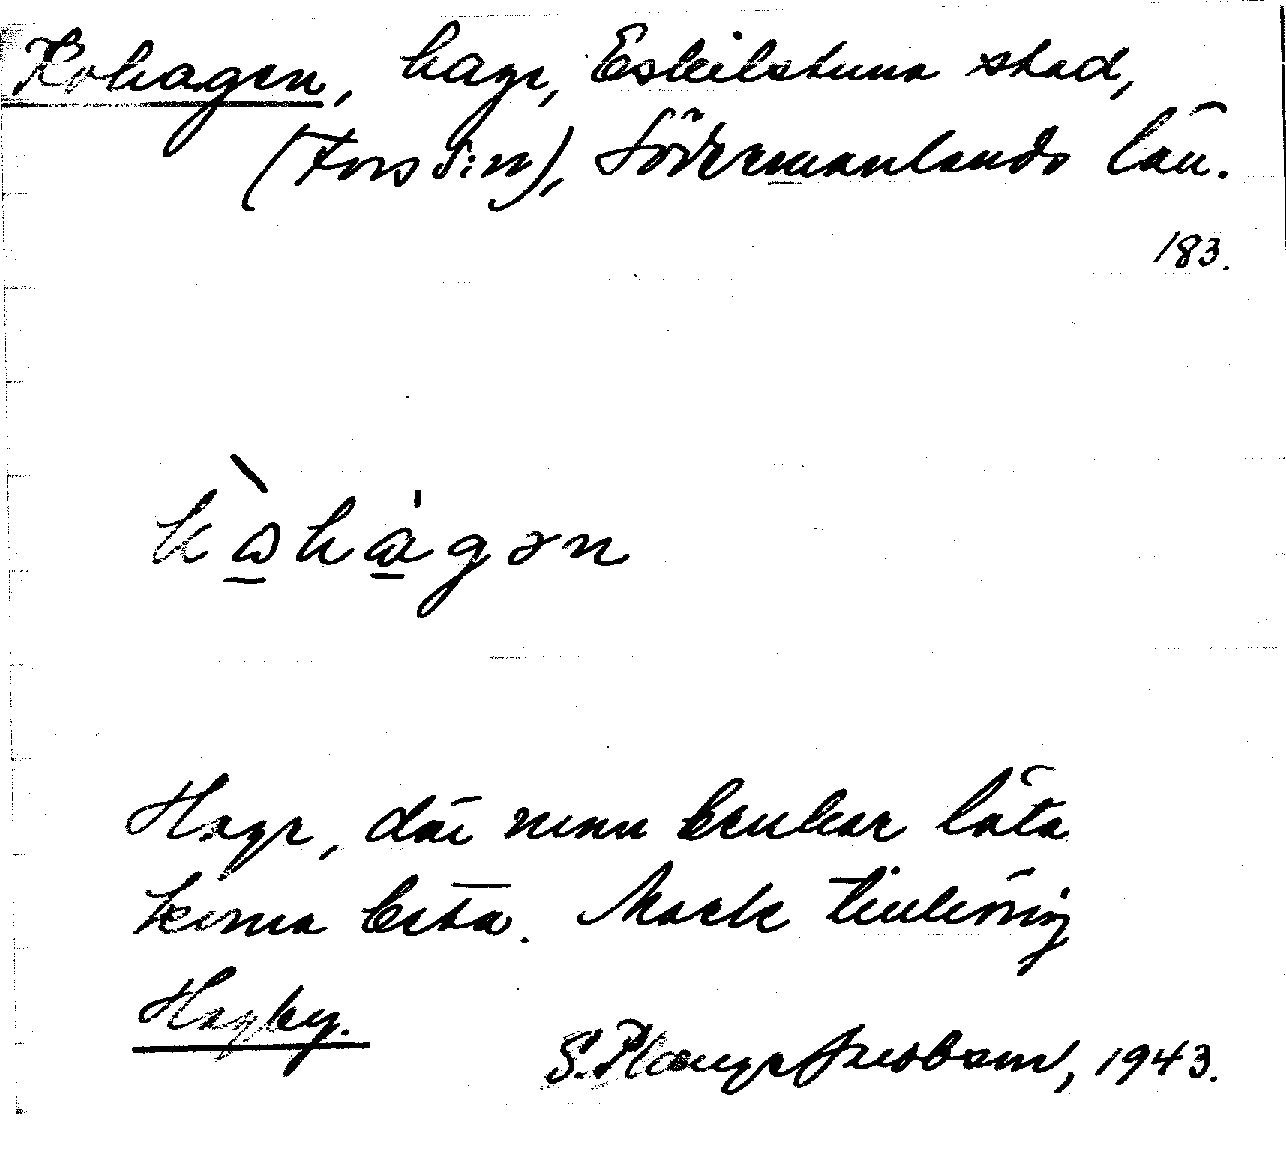 Kohagen, hage, Eskilstuna stad,
(Fors s:n), Södermanlands län.
183.
kohagən
Hage, där man brukar låta
korna beta. Mark tillhörig
Hagby.
S. Plænge Jacobson, 1943.